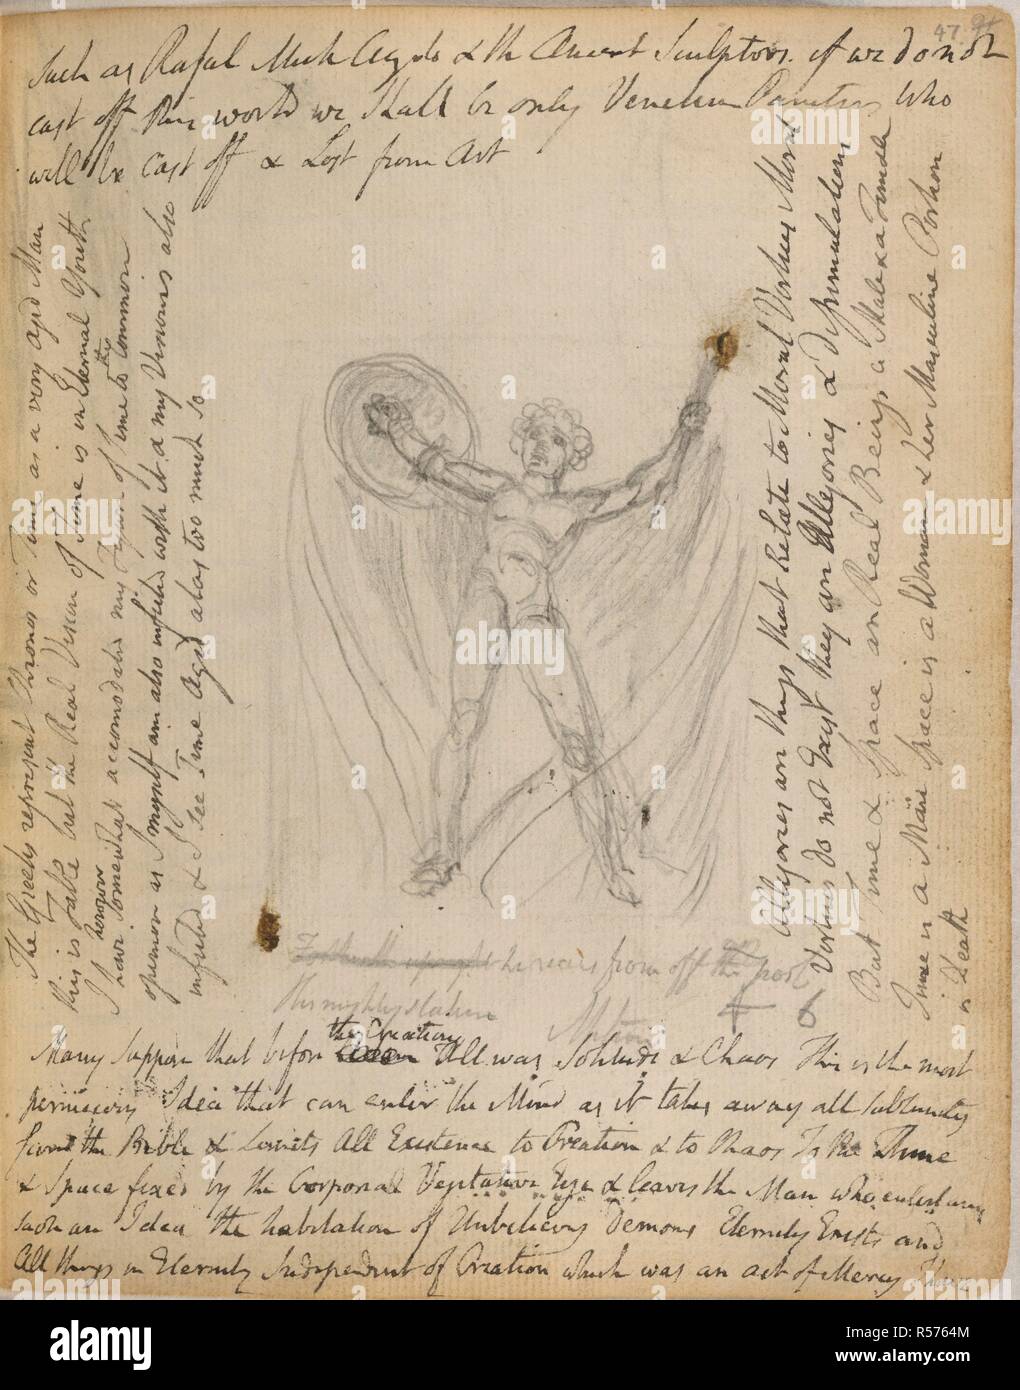 47 91
Such as Rafael Mich Angelo & the Ancient Sculptors. if we do not
cast off this world we shall be only Venetian Painters who
will be cast off & Lost from Art
The Greeks represent Chronos or Time as a very aged Man
this is Fable but the Real Vision of Time is in Eternal Youth
I have however somewhat accomodated my Figure of Time to the Common
opinion as I myself am also infected with it & my Visions also
infected & I see Time Aged alas too much so
Allegories are things that Relate to Moral Virtues Moral
Virtues do not Exist they are Allegories & dissimulations
But Time & Space are Real Beings a Male & a Female
Time is a Man Space is a Woman & her Masculine Portion
is Death
the rears from off the pool
His mighty stature
Milton
Many suppose that before the Creation All was Solitude & Chaos This is the most
pernicious Idea that can enter the Mind as it takes away all sublimity
from the Bible & Limits All Existence to Creation & to Chaos To the Time
& Space fixed by the Corporeal Vegetative Eye & leaves the Man who entertains
such an Idea the habitation of Unbelieving Demons Eternity Exists and
All things in Eternity Independent of Creation which was an act of Mercy
alamy
a
alamy stock photo
Image ID: R5764M
www.alamy.com